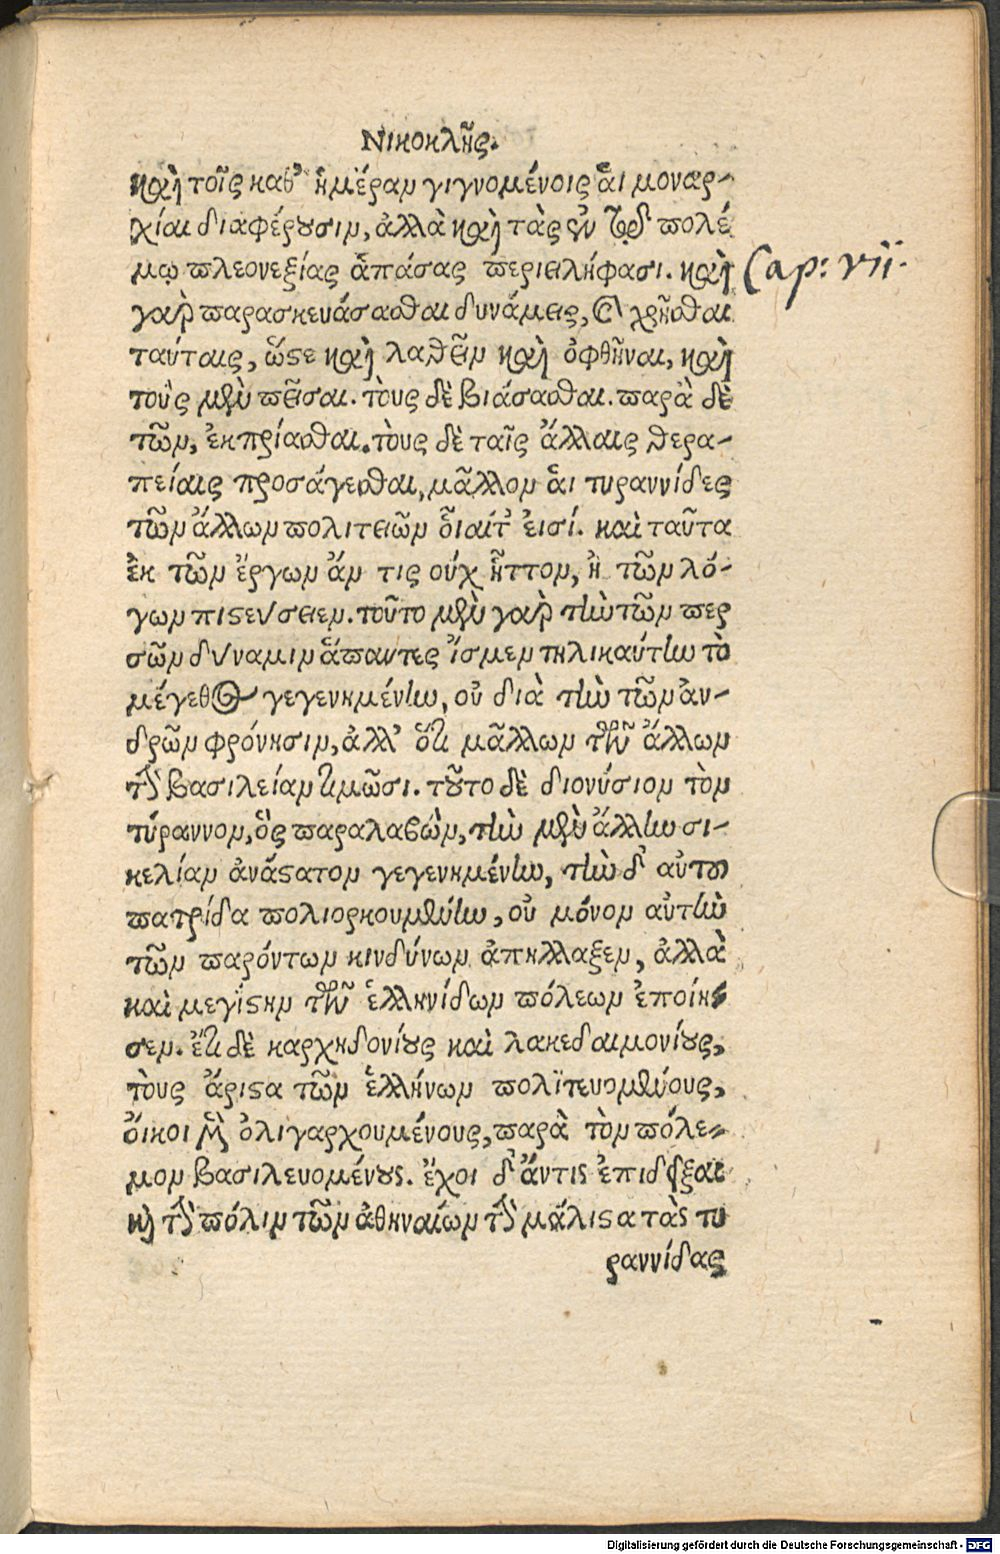 Νικοκλῆς.
καὶ τοῖς καθ' ἡμέραν γιγνομένοις ἁι μοναρ-
χίαι διαφέρουσιν, ἀλλὰ καὶ τὰς ἐν τῷ πολέ
μῳ πλεονεξίας ἁπάσας περιειλήφασι. καὶ
Cap: vii.
γὰρ παρασκευάσασθαι δυνάμεις, καὶ χρῆσθαι
ταύταις, ὥστε καὶ λαθεῖν καὶ ὀφθῆναι, καὶ
τοὺς μὲν πεῖσαι. τοὺς δὲ βιάσασθαι. παρὰ δὲ
τῶν, ἐκπρίασθαι. τοὺς δὲ ταῖς ἄλλαις θερα-
πείαις προσάγεσθαι, μᾶλλον ἁι τυραννίδες
τῶν ἄλλων πολιτειῶν ὁιαίτ' εἰσί. καὶ ταῦτα
ἐκ τῶν ἔργων ἄν τις οὐχ ἧττον, ἢ τῶν λό-
γων πιστεύσειεν. τοῦτο μὲν γὰρ τὴν τῶν περ
σῶν δύναμιν ἅπαντες ἴσμεν τηλικαύτην τὸ
μέγεθος γεγενημένην, οὐ διὰ τὴν τῶν ἀν-
δρῶν φρόνησιν, ἀλλ' ὅτι μᾶλλων τῶν ἄλλων
τὴν βασιλείαν τιμῶσι. τοῦτο δὲ διονύσιον τὸν
τύραννον, ὃς παραλαβὼν, τὴν μὲν ἄλλην σι-
κελίαν ἀνάστατον γεγενημένην, τὴν δ' αὑτοῦ
πατρίδα πολιορκουμένην, οὐ μόνον αὐτὴν
τῶν παρόντων κινδύνων ἀπήλλαξεν, ἀλλὰ
καὶ μεγίστην τῶν ἑλληνίδων πόλεων ἐποίη-
σεν. ἔτι δὲ καρχηδονίους καὶ λακεδαιμονίους,
τοὺς ἄριστα τῶν ἑλλήνων πολϊτευομένους,
ὄικοι μὲν ὀλιγαρχουμένους, παρὰ τὸν πόλε-
μον βασιλευομένους. ἔχοι δ' ἄντις ἐπιδεῖξαι
καὶ τὴν πόλιν τῶν ἀθηναίων τὴν μάλιστα τὰς τυ
ραννίδας
Digitalisierung gefördert durch die Deutsche Forschungsgemeinschaft - DFG